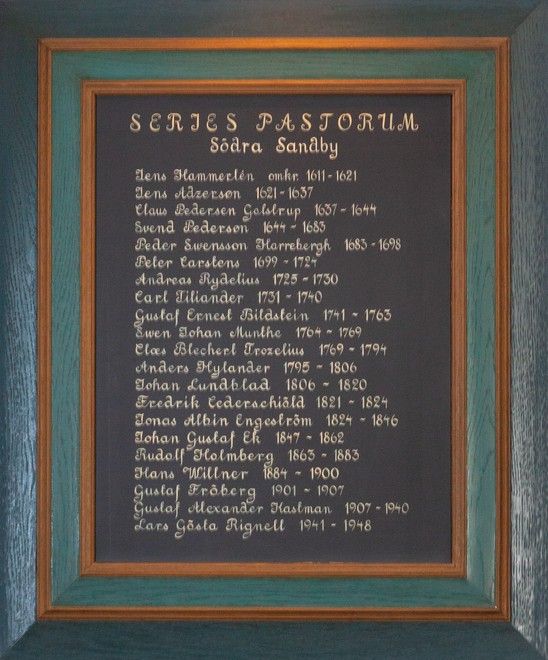 SERIES PASTORUM
Södra Sandby
Jens Hammerlén omkr. 1611-1621
Jens Adzerson 1621-1637
Claus Pedersen Golstrup 1637-1644
Svend Pederson 1644-1683
Peder Swensson Harrebergh 1683-1698
Peter Carstens 1699-1724
Andreas Rydelius 1725-1730
Carl Tiliander 1731-1740
Gustaf Ernest Bildstein 1741-1763
Swen Johan Munthe 1764-1769
Claes Blechert Trozelius 1769-1794
Anders Hylander 1795-1806
Johan Lundblad 1806-1820
Fredrik Cederschiöld 1821-1824
Jonas Albin Engeström 1824-1846
Johan Gustaf Ek 1847-1862
Rudolf Holmberg 1863-1883
Hans Willner 1884-1900
Gustaf Fröberg 1901-1907
Gustaf Alexander Kastman 1907-1940
Lars Gösta Rignell 1941-1948